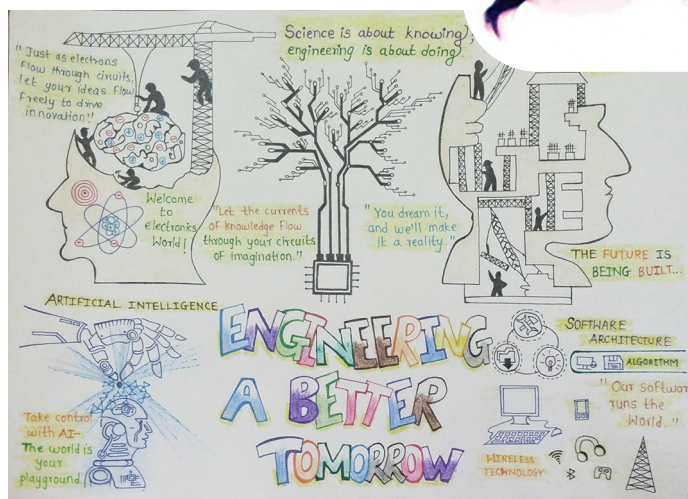 Science is about knowing;
engineering is about doing
"Just as electrons
flow through circuits,
let your ideas flow
freely to drive
innovation!"
Welcome
to
electronics
World!
"Let the currents
of knowledge flow
through your circuits
of imagination."
"You dream it,
and we'll make
it a reality."
THE FUTURE IS
BEING BUILT...
ARTIFICIAL INTELLIGENCE
Take control
with AI-
The world is
your
playground.
ENGINEERING
A BETTER
TOMORROW
SOFTWARE
ARCHITECTURE
ALGORITHM
"Our softwar
runs the
World."
WIRELESS
TECHNOLOGY